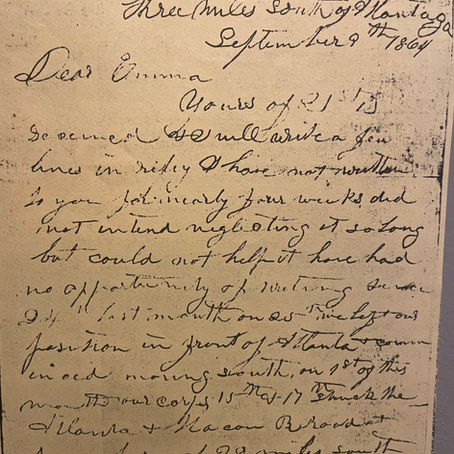 Three miles South of Montaga
September 9th 1864
Dear Emma
Yours of 21st is
received & I will write a few
lines in reply I have not written
to you for nearly four weeks did
not intend neglecting it so long
but could not help it have had
no opportunity of writing since
24th last month on 25th we left our
position in front of Atlanta & comm
enced moving south, on 1st of this
month our corps, 15th & 17th struck the
Atlanta & Macon R Road at
miles south